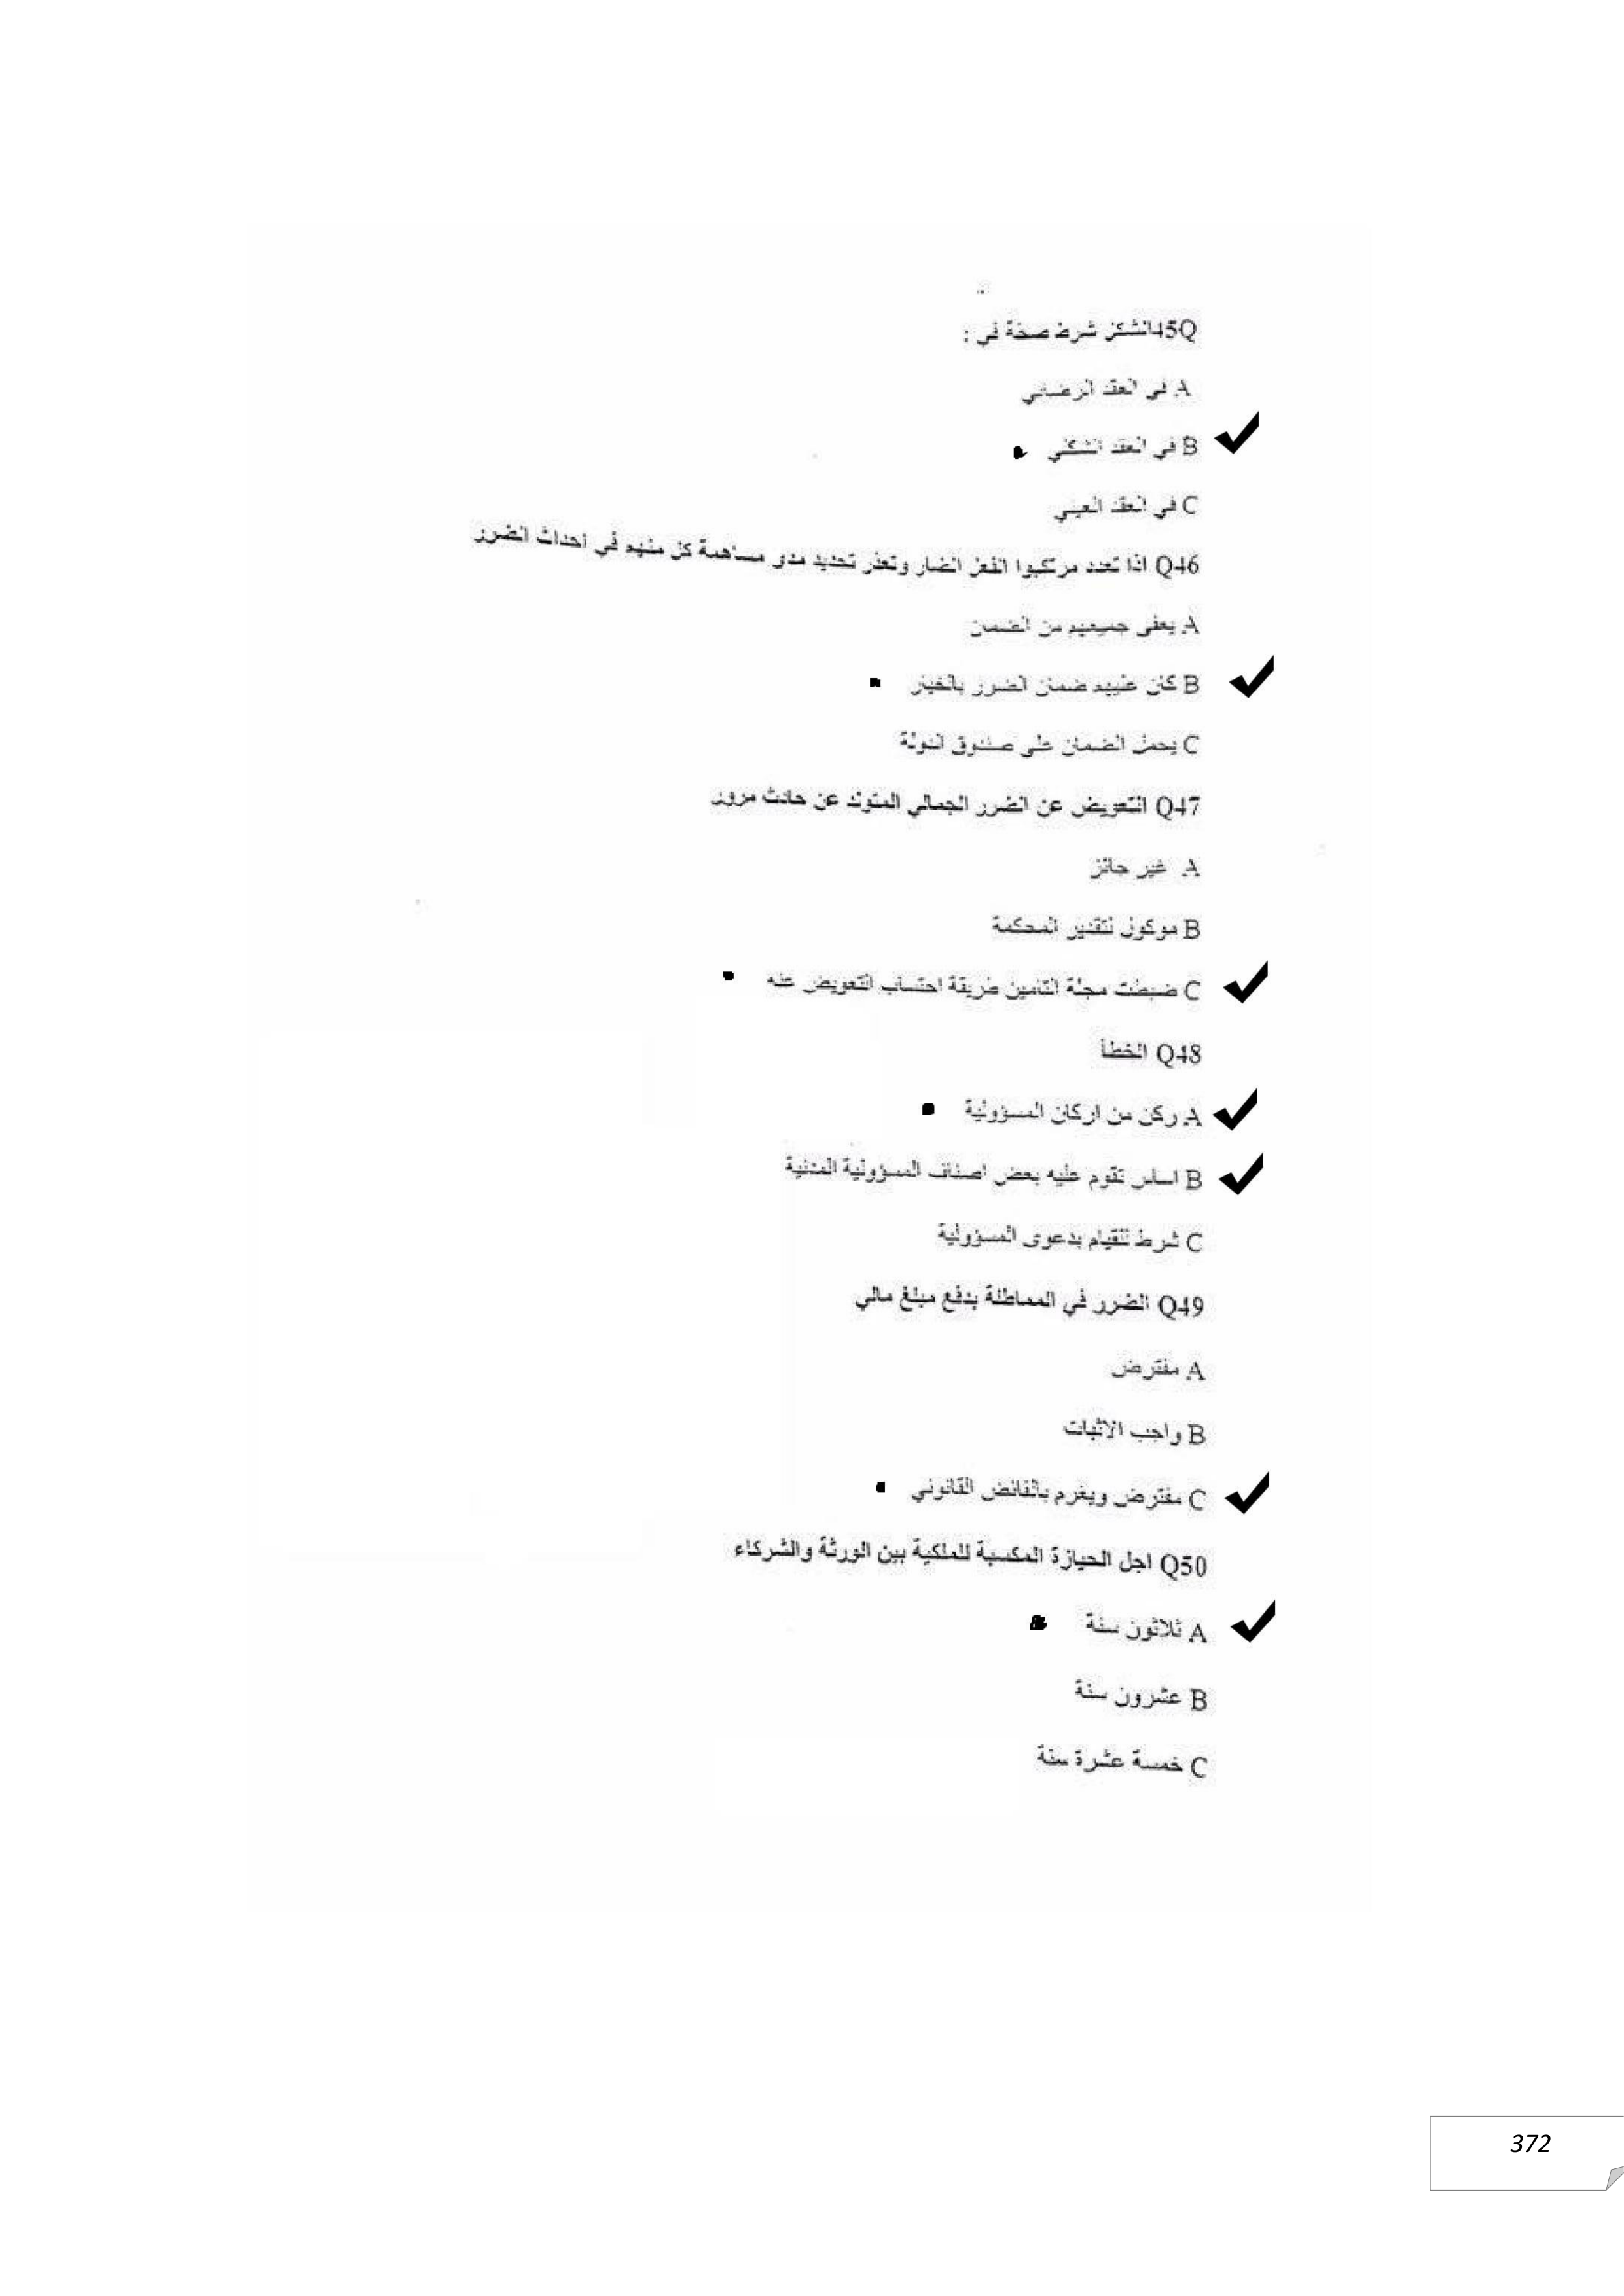 45Qالشكل شرط صحة في :
A في العقد الرضائي
B في العقد الشكلي
C في العقد العيني
Q46 اذا تعدد مرتكبوا الفعل الضار وتعذر تحديد مدى مساهمة كل منهم في احداث الضرر
A يعفى جميعهم من الضمان
B كان عليهم ضمان الضرر بالخيار
C يحمل الضمان على صندوق الدولة
Q47 التعويض عن الضرر الجمالي المتولد عن حادث مرور
A غير جائز
B موكول لتقدير المحكمة
C ضبطت مجلة التامين طريقة احتساب التعويض عنه
Q48 الخطأ
A ركن من اركان المسؤولية
B اساس تقوم عليه بعض اصناف المسؤولية المدنية
C شرط للقيام بدعوى المسؤولية
Q49 الضرر في المماطلة بدفع مبلغ مالي
A مفترض
B واجب الاثبات
C مفترض ويغرم بالفائض القانوني
Q50 اجل الحيازة المكسبة للملكية بين الورثة والشركاء
A ثلاثون سنة
B عشرون سنة
C خمسة عشرة سنة
372